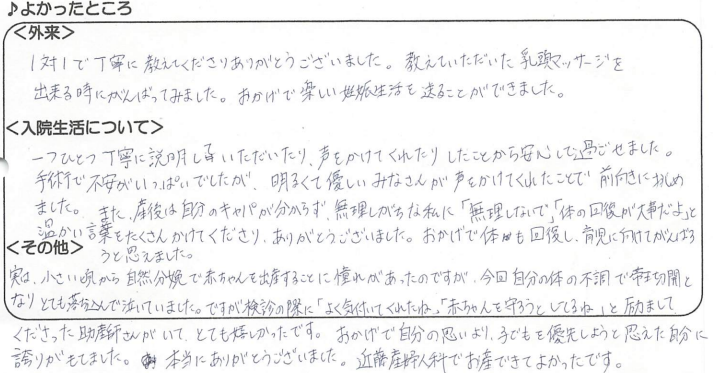 ♪よかったところ
<外来>
1対1で丁寧に教えてくださりありがとうございました。教えていただいた乳頭マッサージを
出来る時にがんばってみました。おかげで楽しい妊娠生活を送ることができました。
<入院生活について>
一つひとつ丁寧に説明していただいたり、声をかけてくれたりしたことから安心して過ごせました。
手術で不安がいっぱいでしたが、明るくて優しいみなさんが声をかけてくれたことで前向きに挑め
ました。また、産後は自分のキャパが分からず、無理しがちな私に「無理しないで」「体の回復が大事だよ」と
温かい言葉をたくさんかけてくださり、ありがとうございました。おかげで体も回復し、育児に向けてがんばろ
うと思えました。
<その他>
実は、小さい頃から自然分娩で赤ちゃんを出産することに憧れがあったのですが、今回自分の体の不調で帝王切開と
なりとても落ち込んで泣いていました。ですが検診の際に「よく気付いてくれたね」「赤ちゃんを守ろうとしてるね」と励まして
くださった助産師さんがいて、とても嬉しかったです。おかげで自分の思いより、子どもを優先しようと思えた自分に
誇りがもてました。本当にありがとうございました。近藤産婦人科でお産できてよかったです。